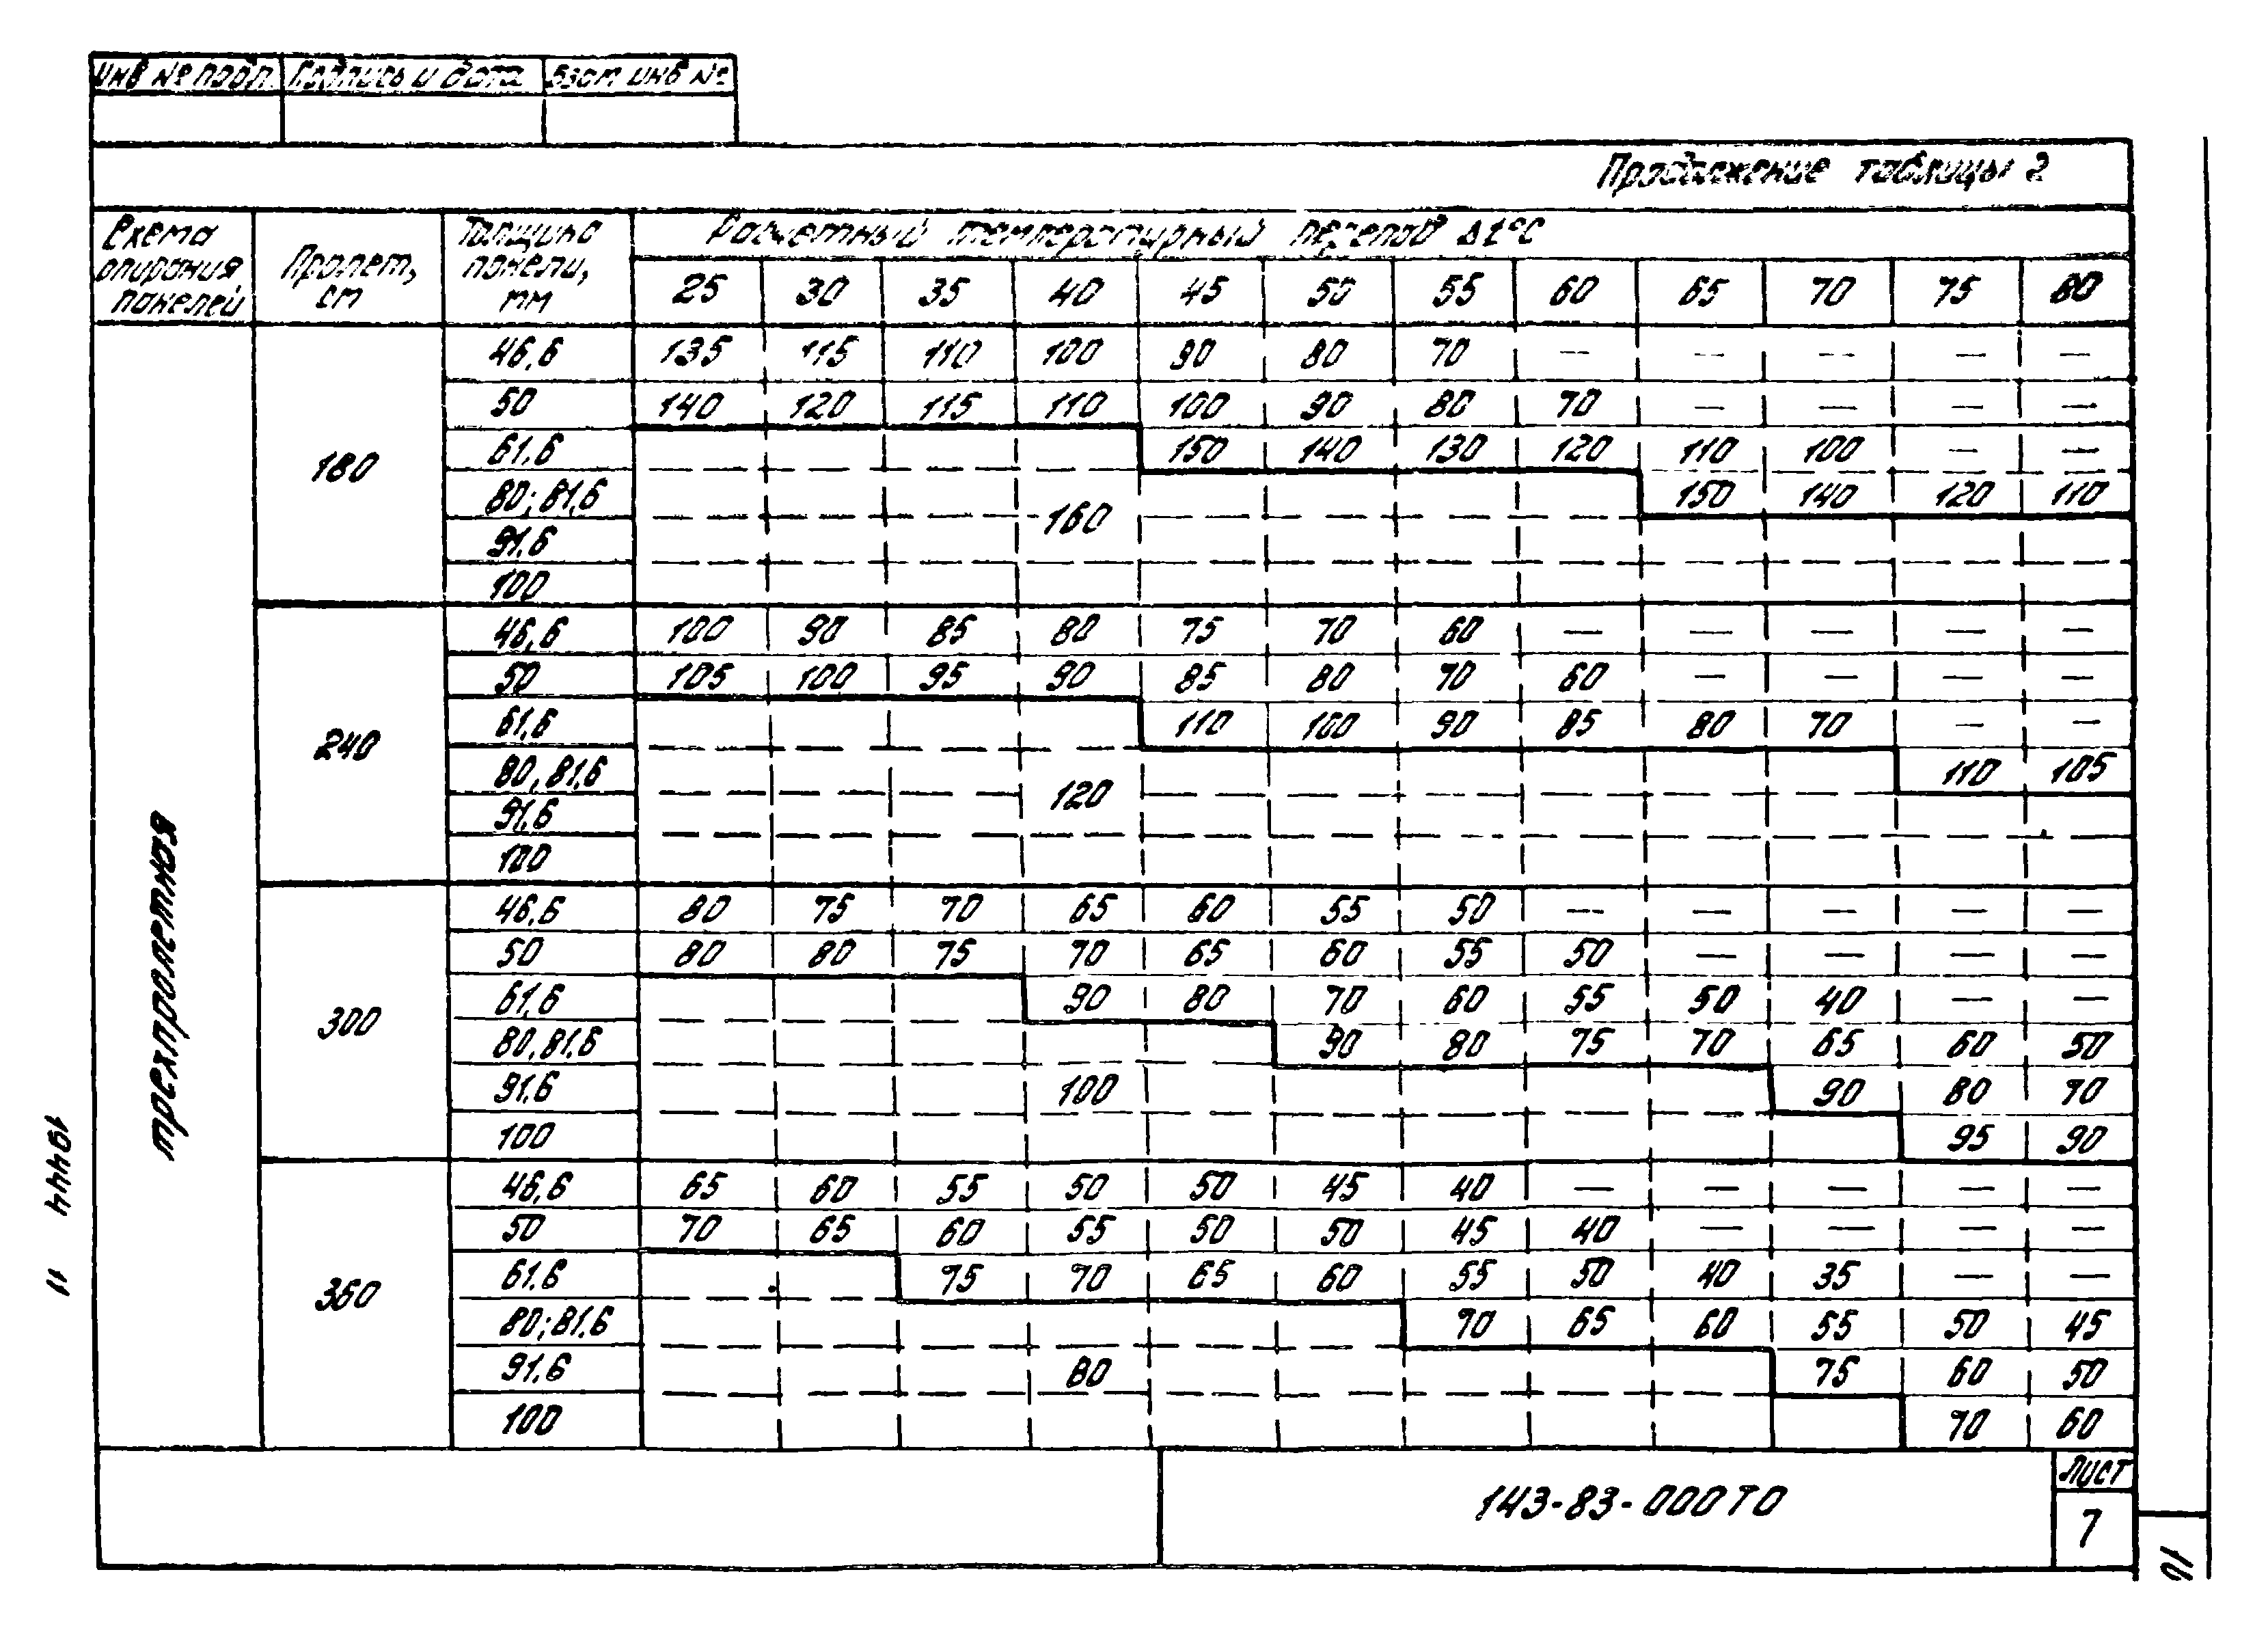 Инв № подп. Подпись и дата Взам инв №
Продолжение таблицы 2
Схема опирания панелей Пролет, см Толщина панели, мм Расчетный температурный перепад Δt°С
25 30 35 40 45 50 55 60 65 70 75 80
трехпролетная
180
46,6 135 115 110 100 90 80 70 — — — — —
50 140 120 115 110 100 90 80 70 — — — —
61,6 150 140 130 120 110 100 — —
80; 81,6 150 140 120 110
160
91,6
100
240
46,6 100 90 85 80 75 70 60 — — — — —
50 105 100 95 90 85 80 70 60 — — — —
61,6 110 100 90 85 80 70 — —
80, 81,6 110 105
120
91,6
100
300
46,6 80 75 70 65 60 55 50 — — — — —
50 80 80 75 70 65 60 55 50 — — — —
61,6 90 80 70 60 55 50 40 — —
80, 81,6 90 80 75 70 65 60 50
91,6 100 90 80 70
100 95 90
360
46,6 65 60 55 50 50 45 40 — — — — —
50 70 65 60 55 50 50 45 40 — — — —
61,6 75 70 65 60 55 50 40 35 — —
80; 81,6 70 65 60 55 50 45
91,6 80 75 60 50
100 70 60
143-83-000ТО
Лист
7
19444 11
16